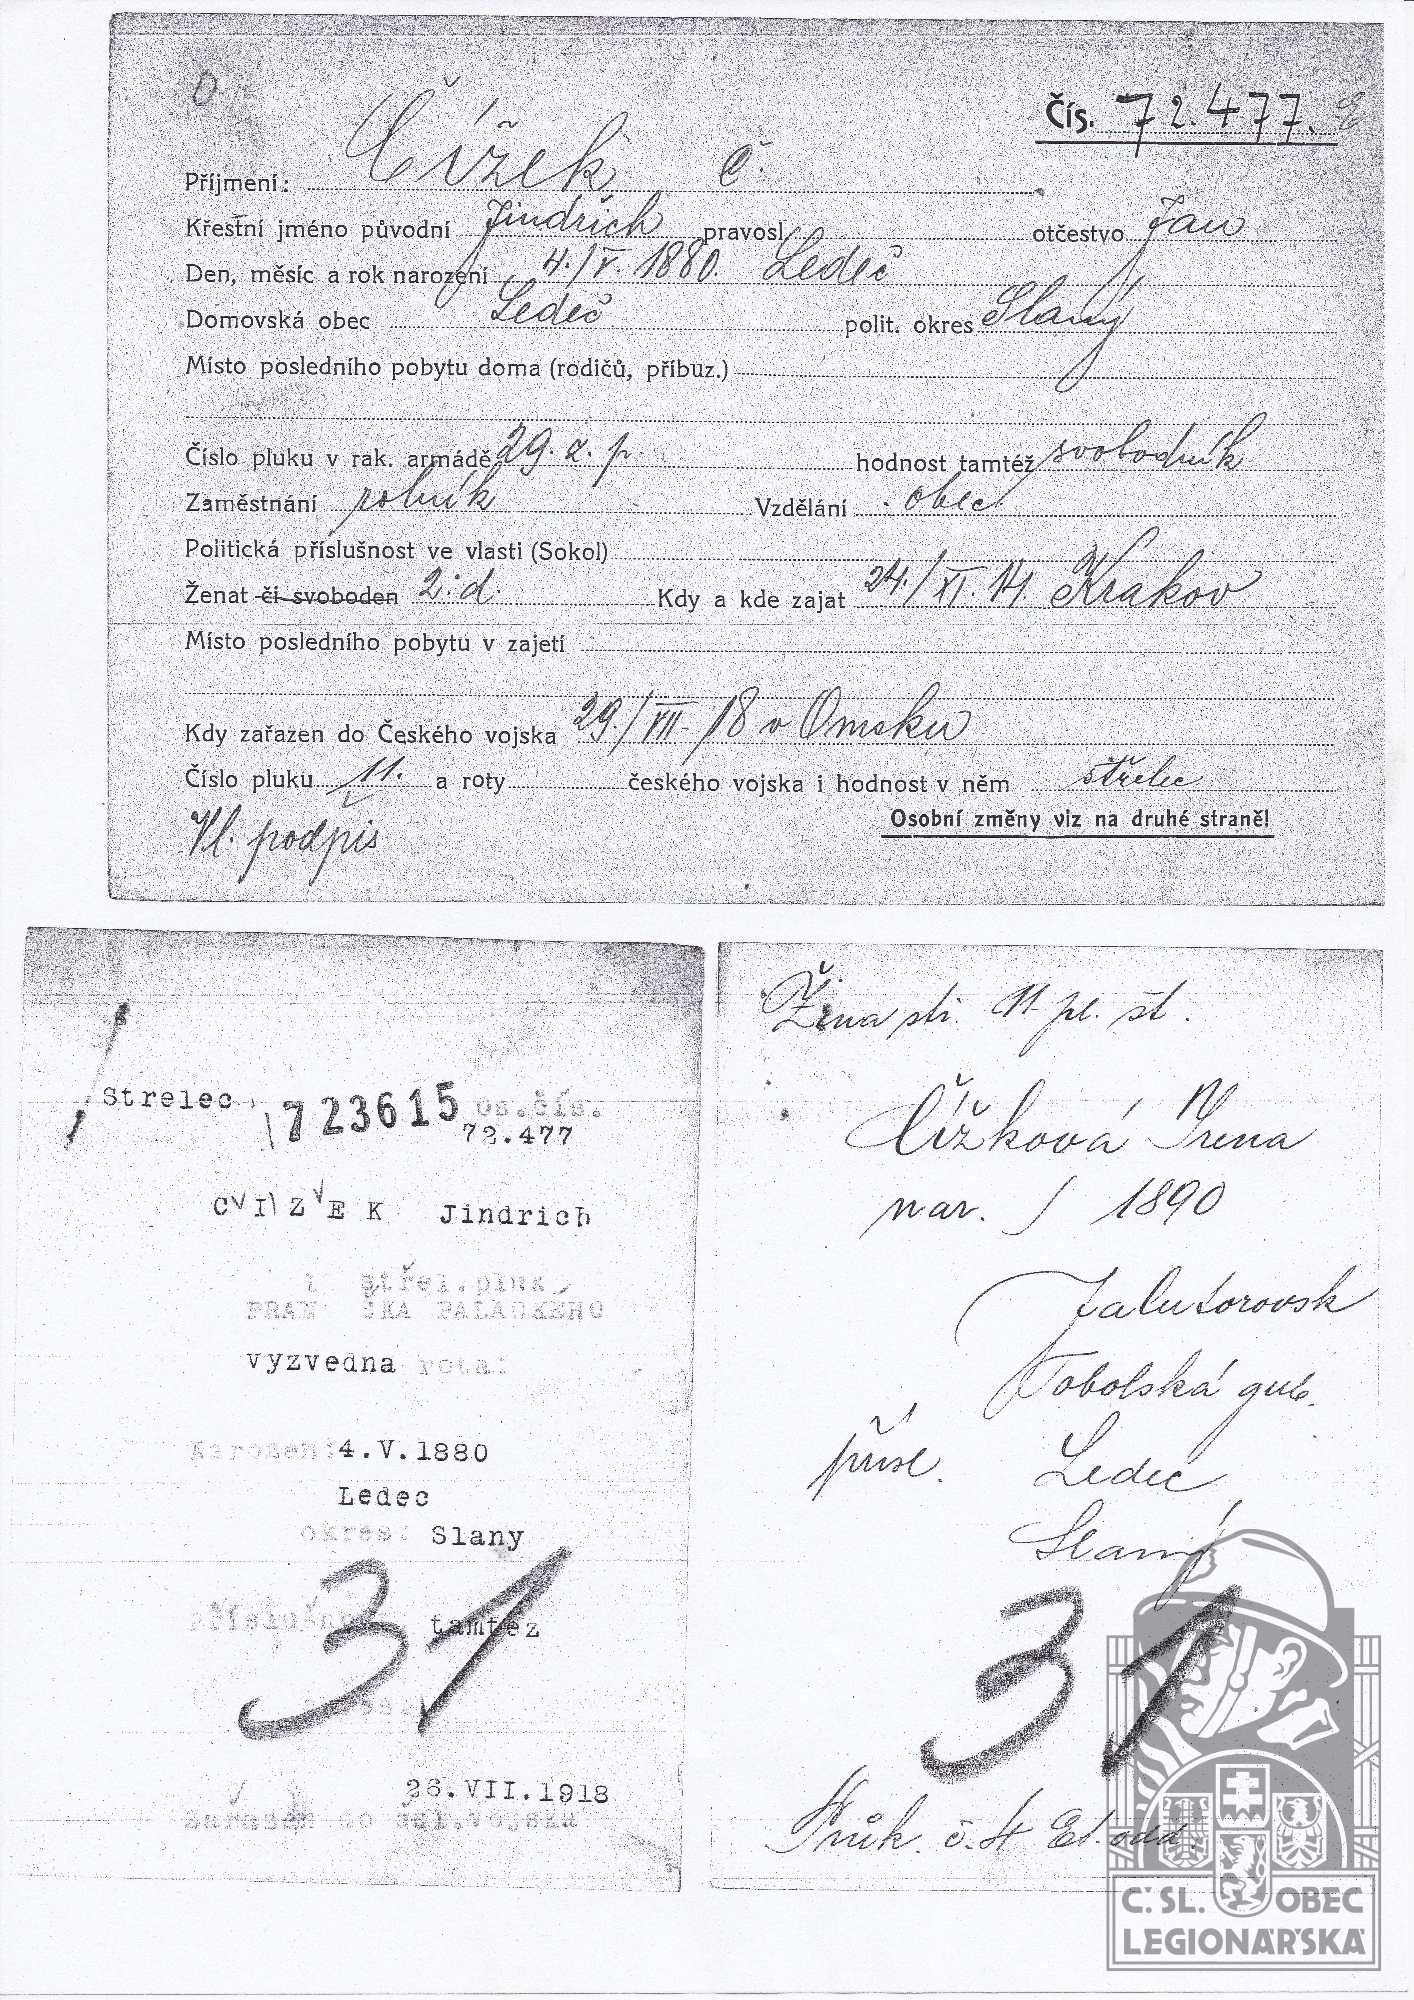 Čís. 72.477.
Příjmení: Čížek Č.
Křestní jméno původní Jindřich pravosl. otčestvo Jan
Den, měsíc a rok narození 4./V. 1880. Ledeč
Domovská obec Ledeč polit. okres Slaný
Místo posledního pobytu doma (rodičů, příbuz.)
Číslo pluku v rak. armádě 29. z. p. hodnost tamtéž svobodník
Zaměstnání rolník Vzdělání obec.
Politická příslušnost ve vlasti (Sokol)
Ženat či svoboden 2. d. Kdy a kde zajat 24./XI. 14. Krakov
Místo posledního pobytu v zajetí
Kdy zařazen do Českého vojska 29/VII-18 v Omsku
Číslo pluku 11. a roty českého vojska i hodnost v něm střelec
Osobní změny viz na druhé straně!
Vl. podpis
Strelec 723615 os.čís.
72.477
CIZEK Jindrich
1 střel.pluk
FRAN ŠKA PALACKÉHO
vyzvedna rota:
Narozen: 4.V.1880
Ledec
okres: Slany
příslušný tamtez
31
26.VII.1918
Zařazen do čsl.vojska
Žena stř. 11. pl. št.
Čížková Irena
nar. 1890
Jalutorovsk
Tobolská gub.
přísl. Ledec
Slaný
31
Průk. č. 4 Et. odd.
Č. SL. OBEC
LEGIONÁŘSKÁ